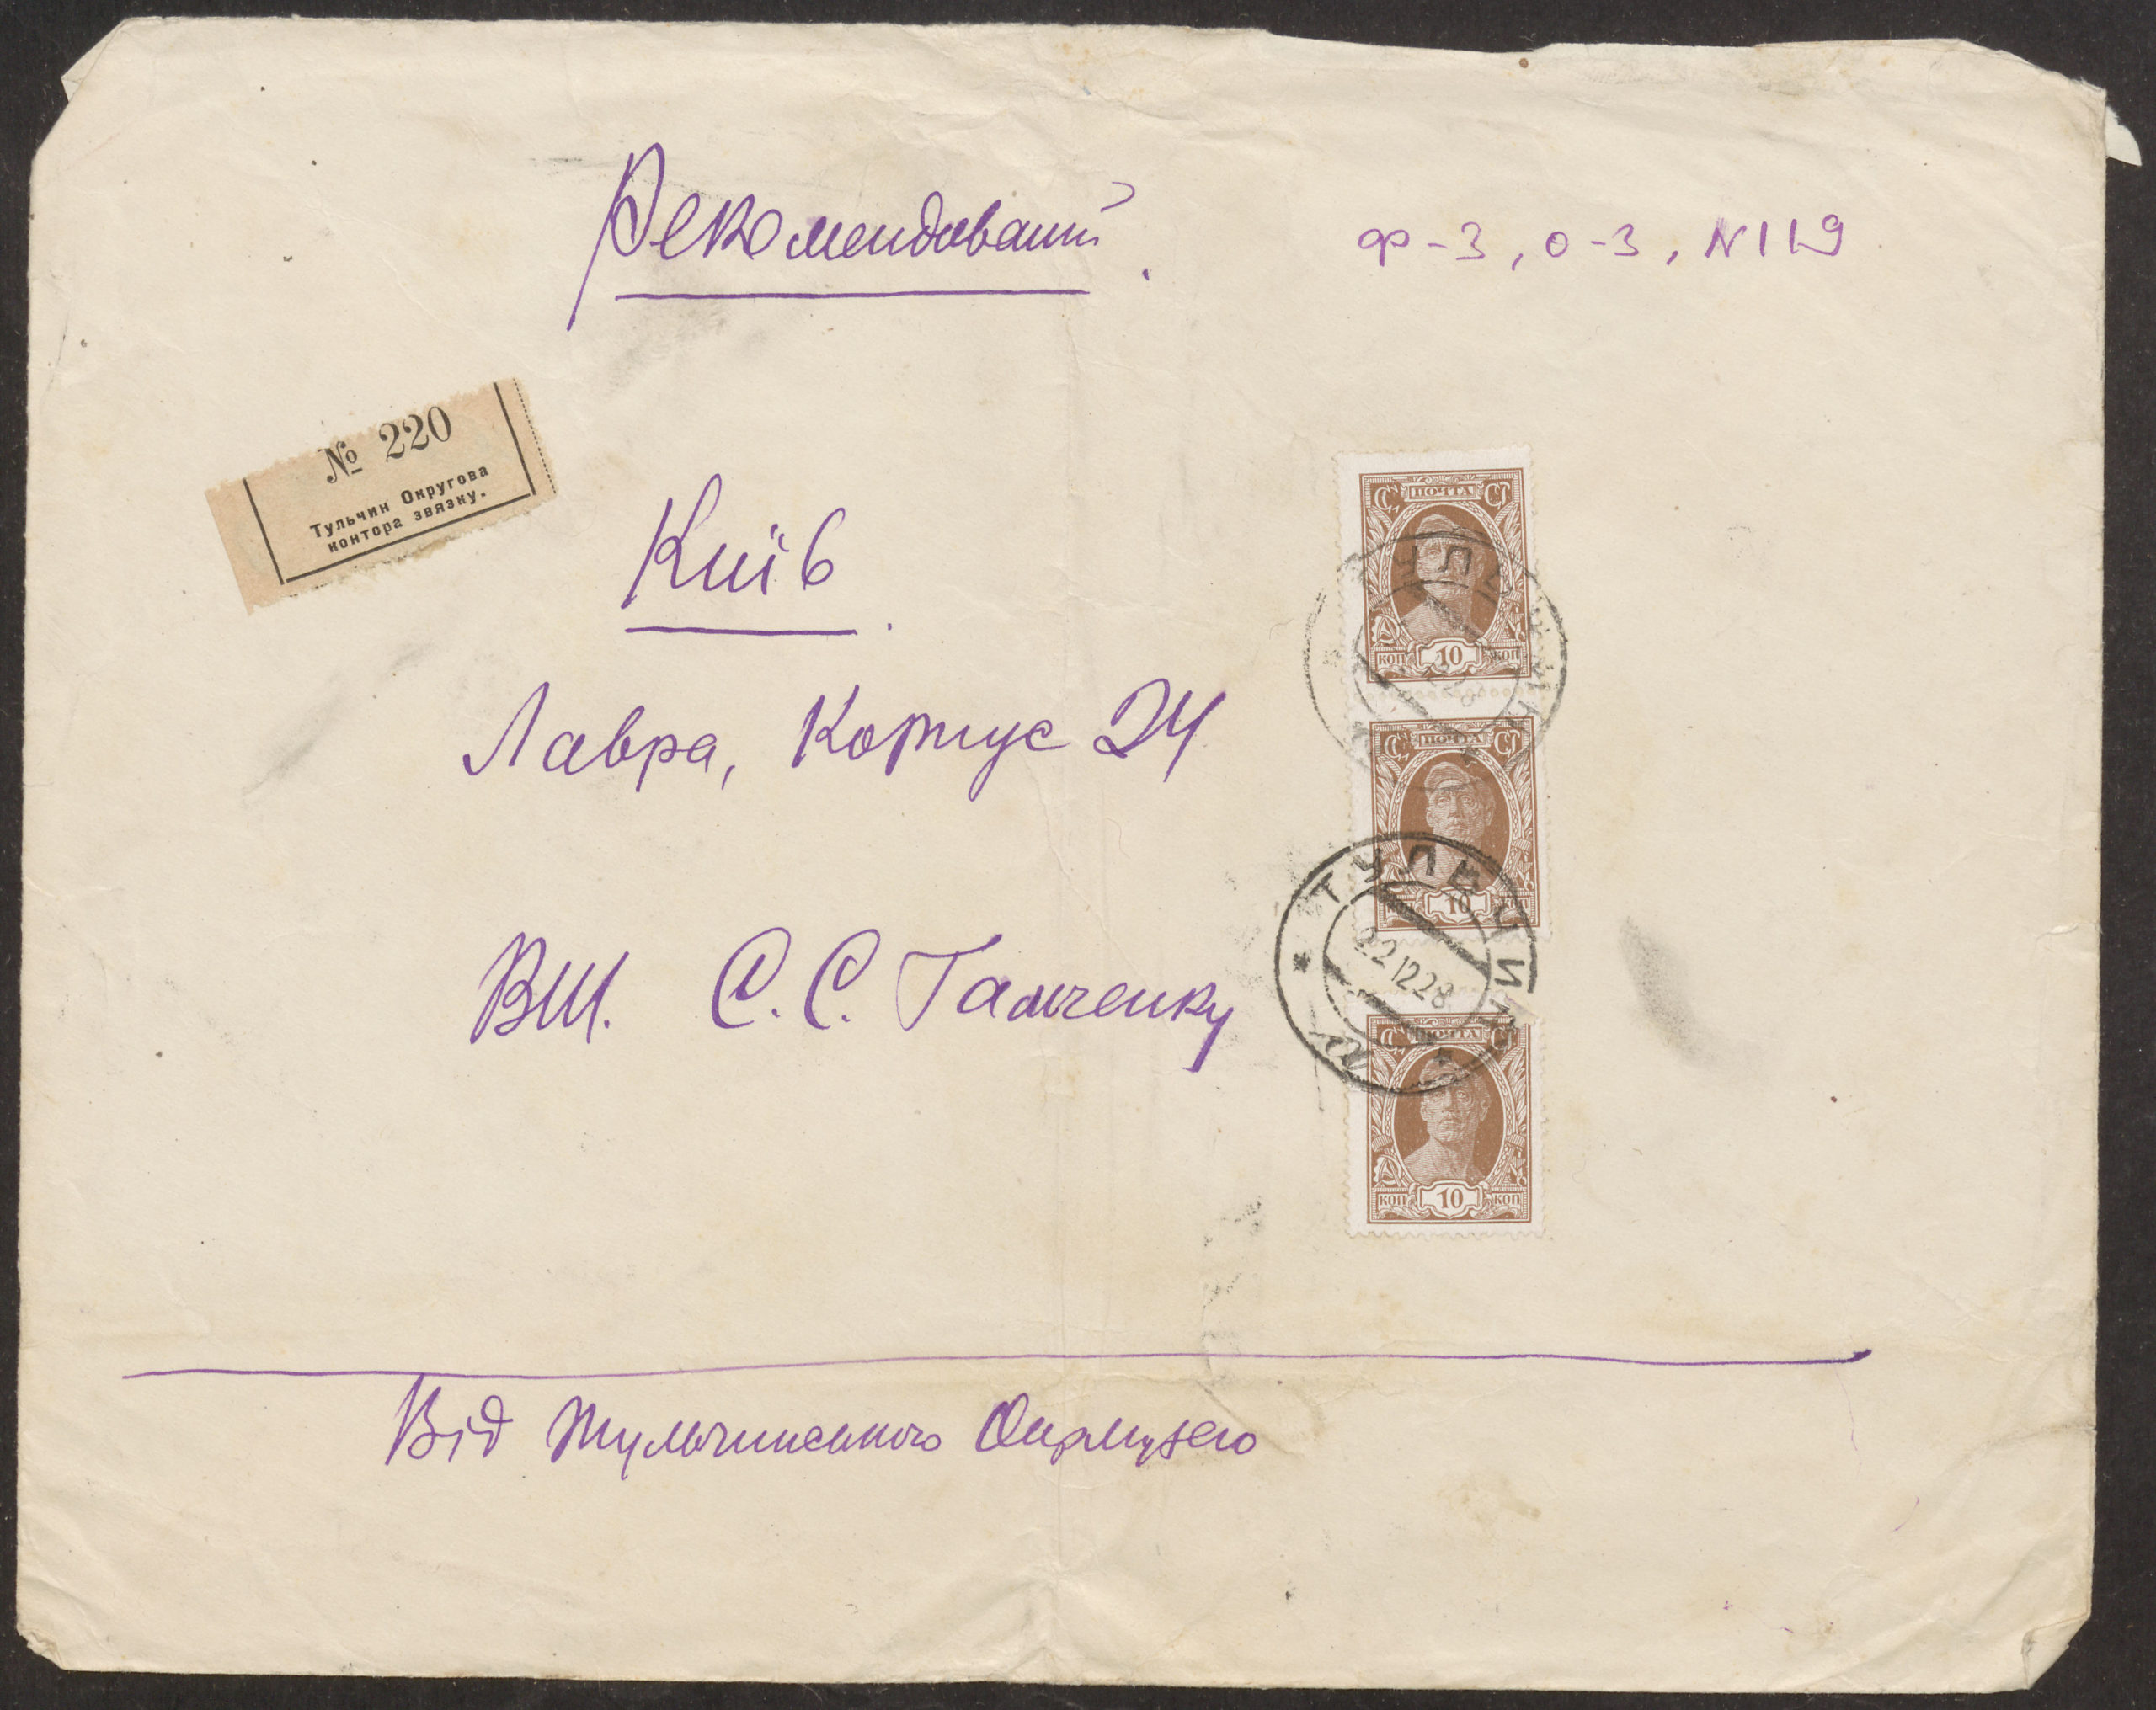 Рекомендований.
ф-3, о-3, N119
№ 220
Тульчин Округова
контора звязку.
Київ.
Лавра, Корпус 24
ВШ. С.С. Гамченку
Від Тульчинського Окрмузею
ПОЧТА
КОП 10 КОП
ПОЧТА
КОП 10 КОП
ПОЧТА
КОП 10 КОП
ТУЛЬЧИН
ТУЛЬЧИН
22 12 28